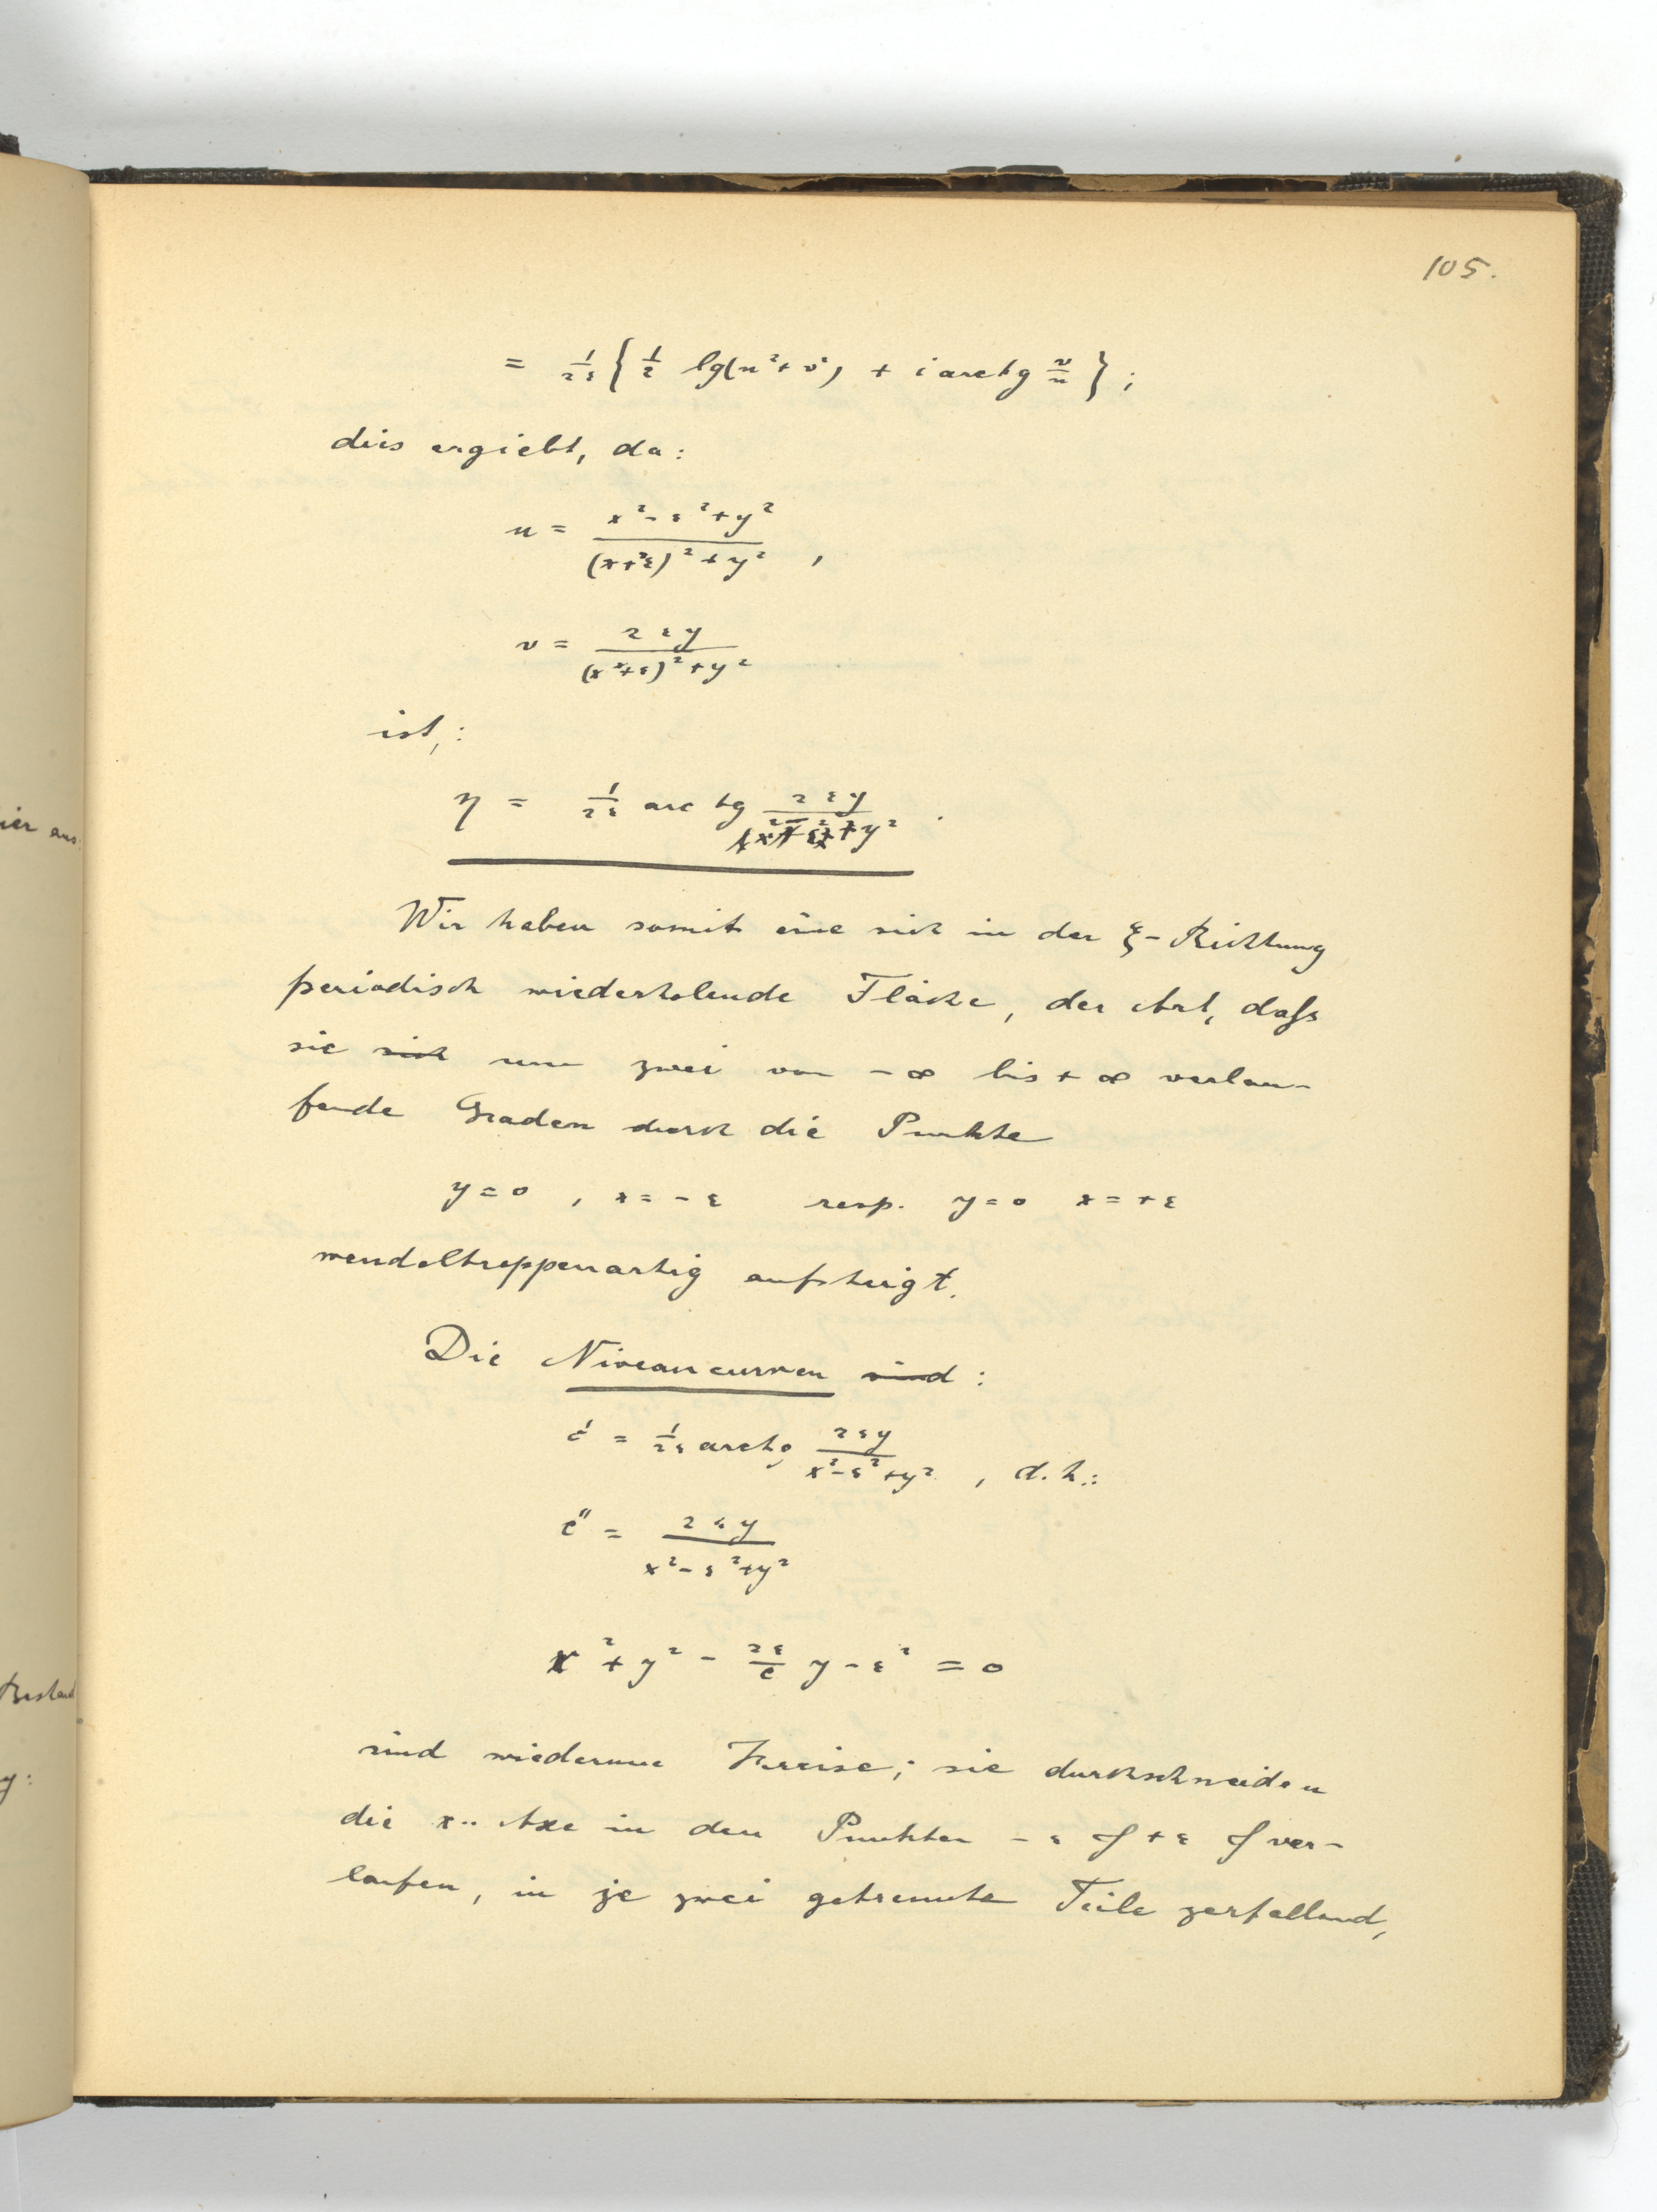 105.
= 1/2ε { 1/2 lg(u²+v²) + i arctg v/u } ;
dies ergiebt, da:
u = (x²-ε²+y²)/((x+ε)²+y²) ,
v = 2εy/((x+ε)²+y²)
ist,:
η = 1/2ε arc tg 2εy/(x²-ε²+y²) .
Wir haben somit eine sich in der ξ-Richtung
periodisch wiederholende Fläche, der Art, dass
sie sich um zwei von -∞ bis +∞ verlau-
fende Graden durch die Punkte
y=0 , x=-ε resp. y=0 x=+ε
wendeltreppenartig aufsteigt.
Die Niveaucurven sind:
c' = 1/2ε arctg 2εy/(x²-ε²+y²) , d.h.:
c" = 2εy/(x²-ε²+y²)
x²+y² - 2ε/c y-ε² = 0
sind wiederum Kreise; sie durchschneiden
die x-Axe in den Punkten -ε & +ε & ver-
laufen, in je zwei getrennte Teile zerfallend,
ier aus:
y: